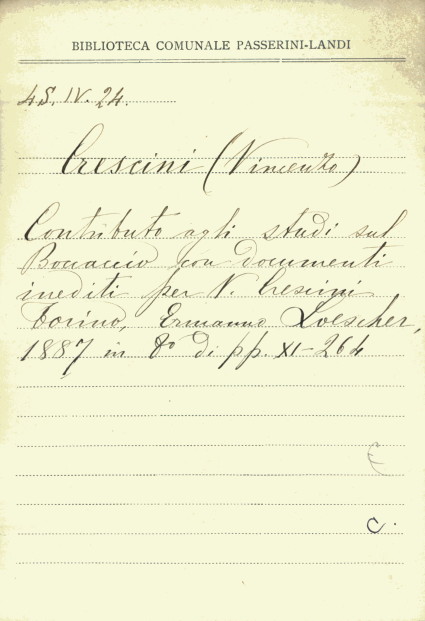 BIBLIOTECA COMUNALE PASSERINI-LANDI
4S. IV. 24.
Crescini (Vincenzo)
Contributo agli studi sul
Boccaccio con documenti
inediti per V. Crescini
Torino, Ermanno Loescher,
1887 in 8º di pp. XI-264
C.